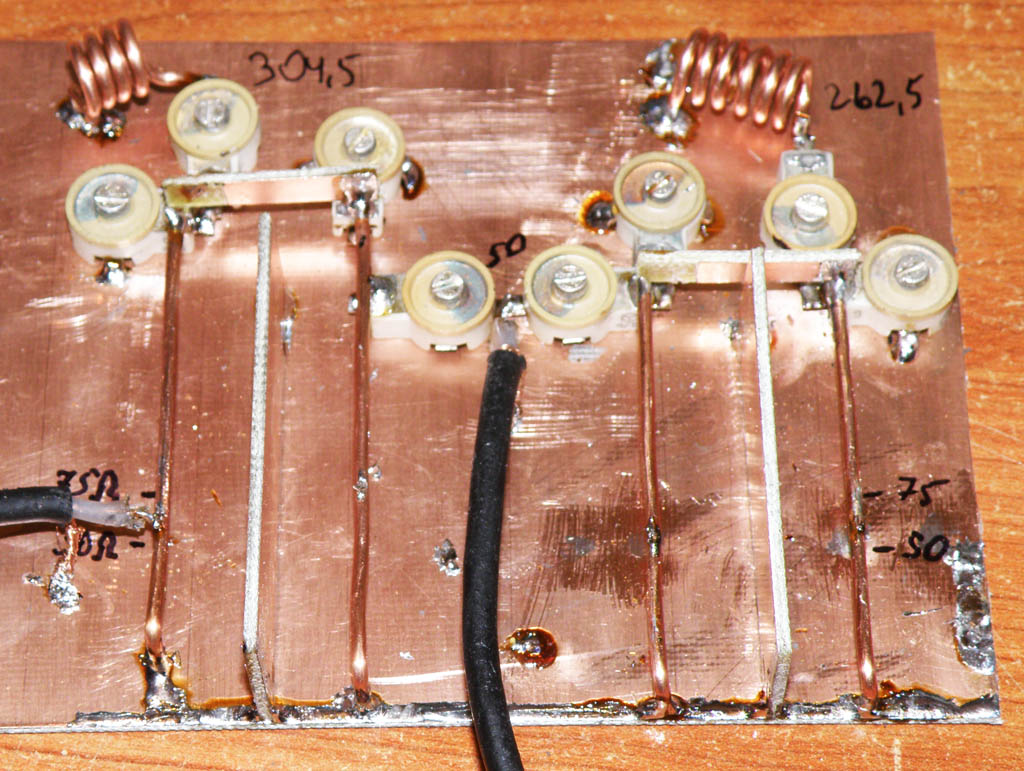 304,5
262,5
50
75Ω -
50Ω -
- 75
- 50